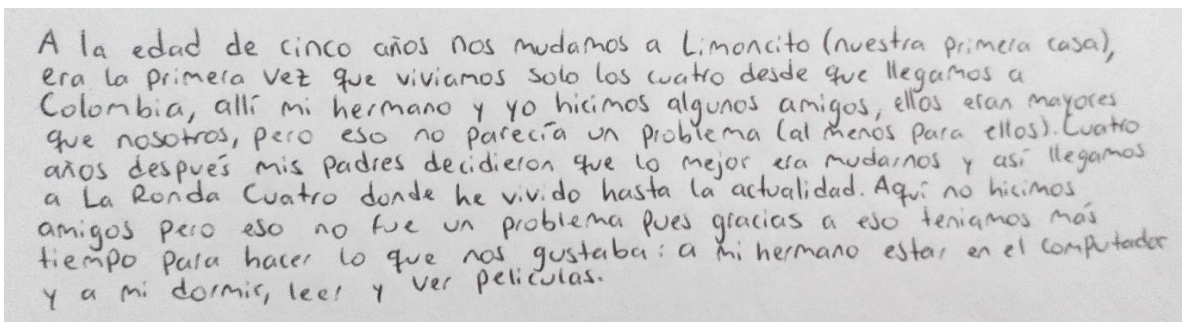 A la edad de cinco años nos mudamos a Limoncito (nuestra primera casa),
era la primera vez que viviamos solo los cuatro desde que llegamos a
Colombia, allí mi hermano y yo hicimos algunos amigos, ellos eran mayores
que nosotros, pero eso no parecía un problema (al menos para ellos). Cuatro
años después mis padres decidieron que lo mejor era mudarnos y así llegamos
a La Ronda Cuatro donde he vivido hasta la actualidad. Aquí no hicimos
amigos pero eso no fue un problema pues gracias a eso teniamos más
tiempo para hacer lo que nos gustaba: a mi hermano estar en el computador
y a mi dormir, leer y ver peliculas.